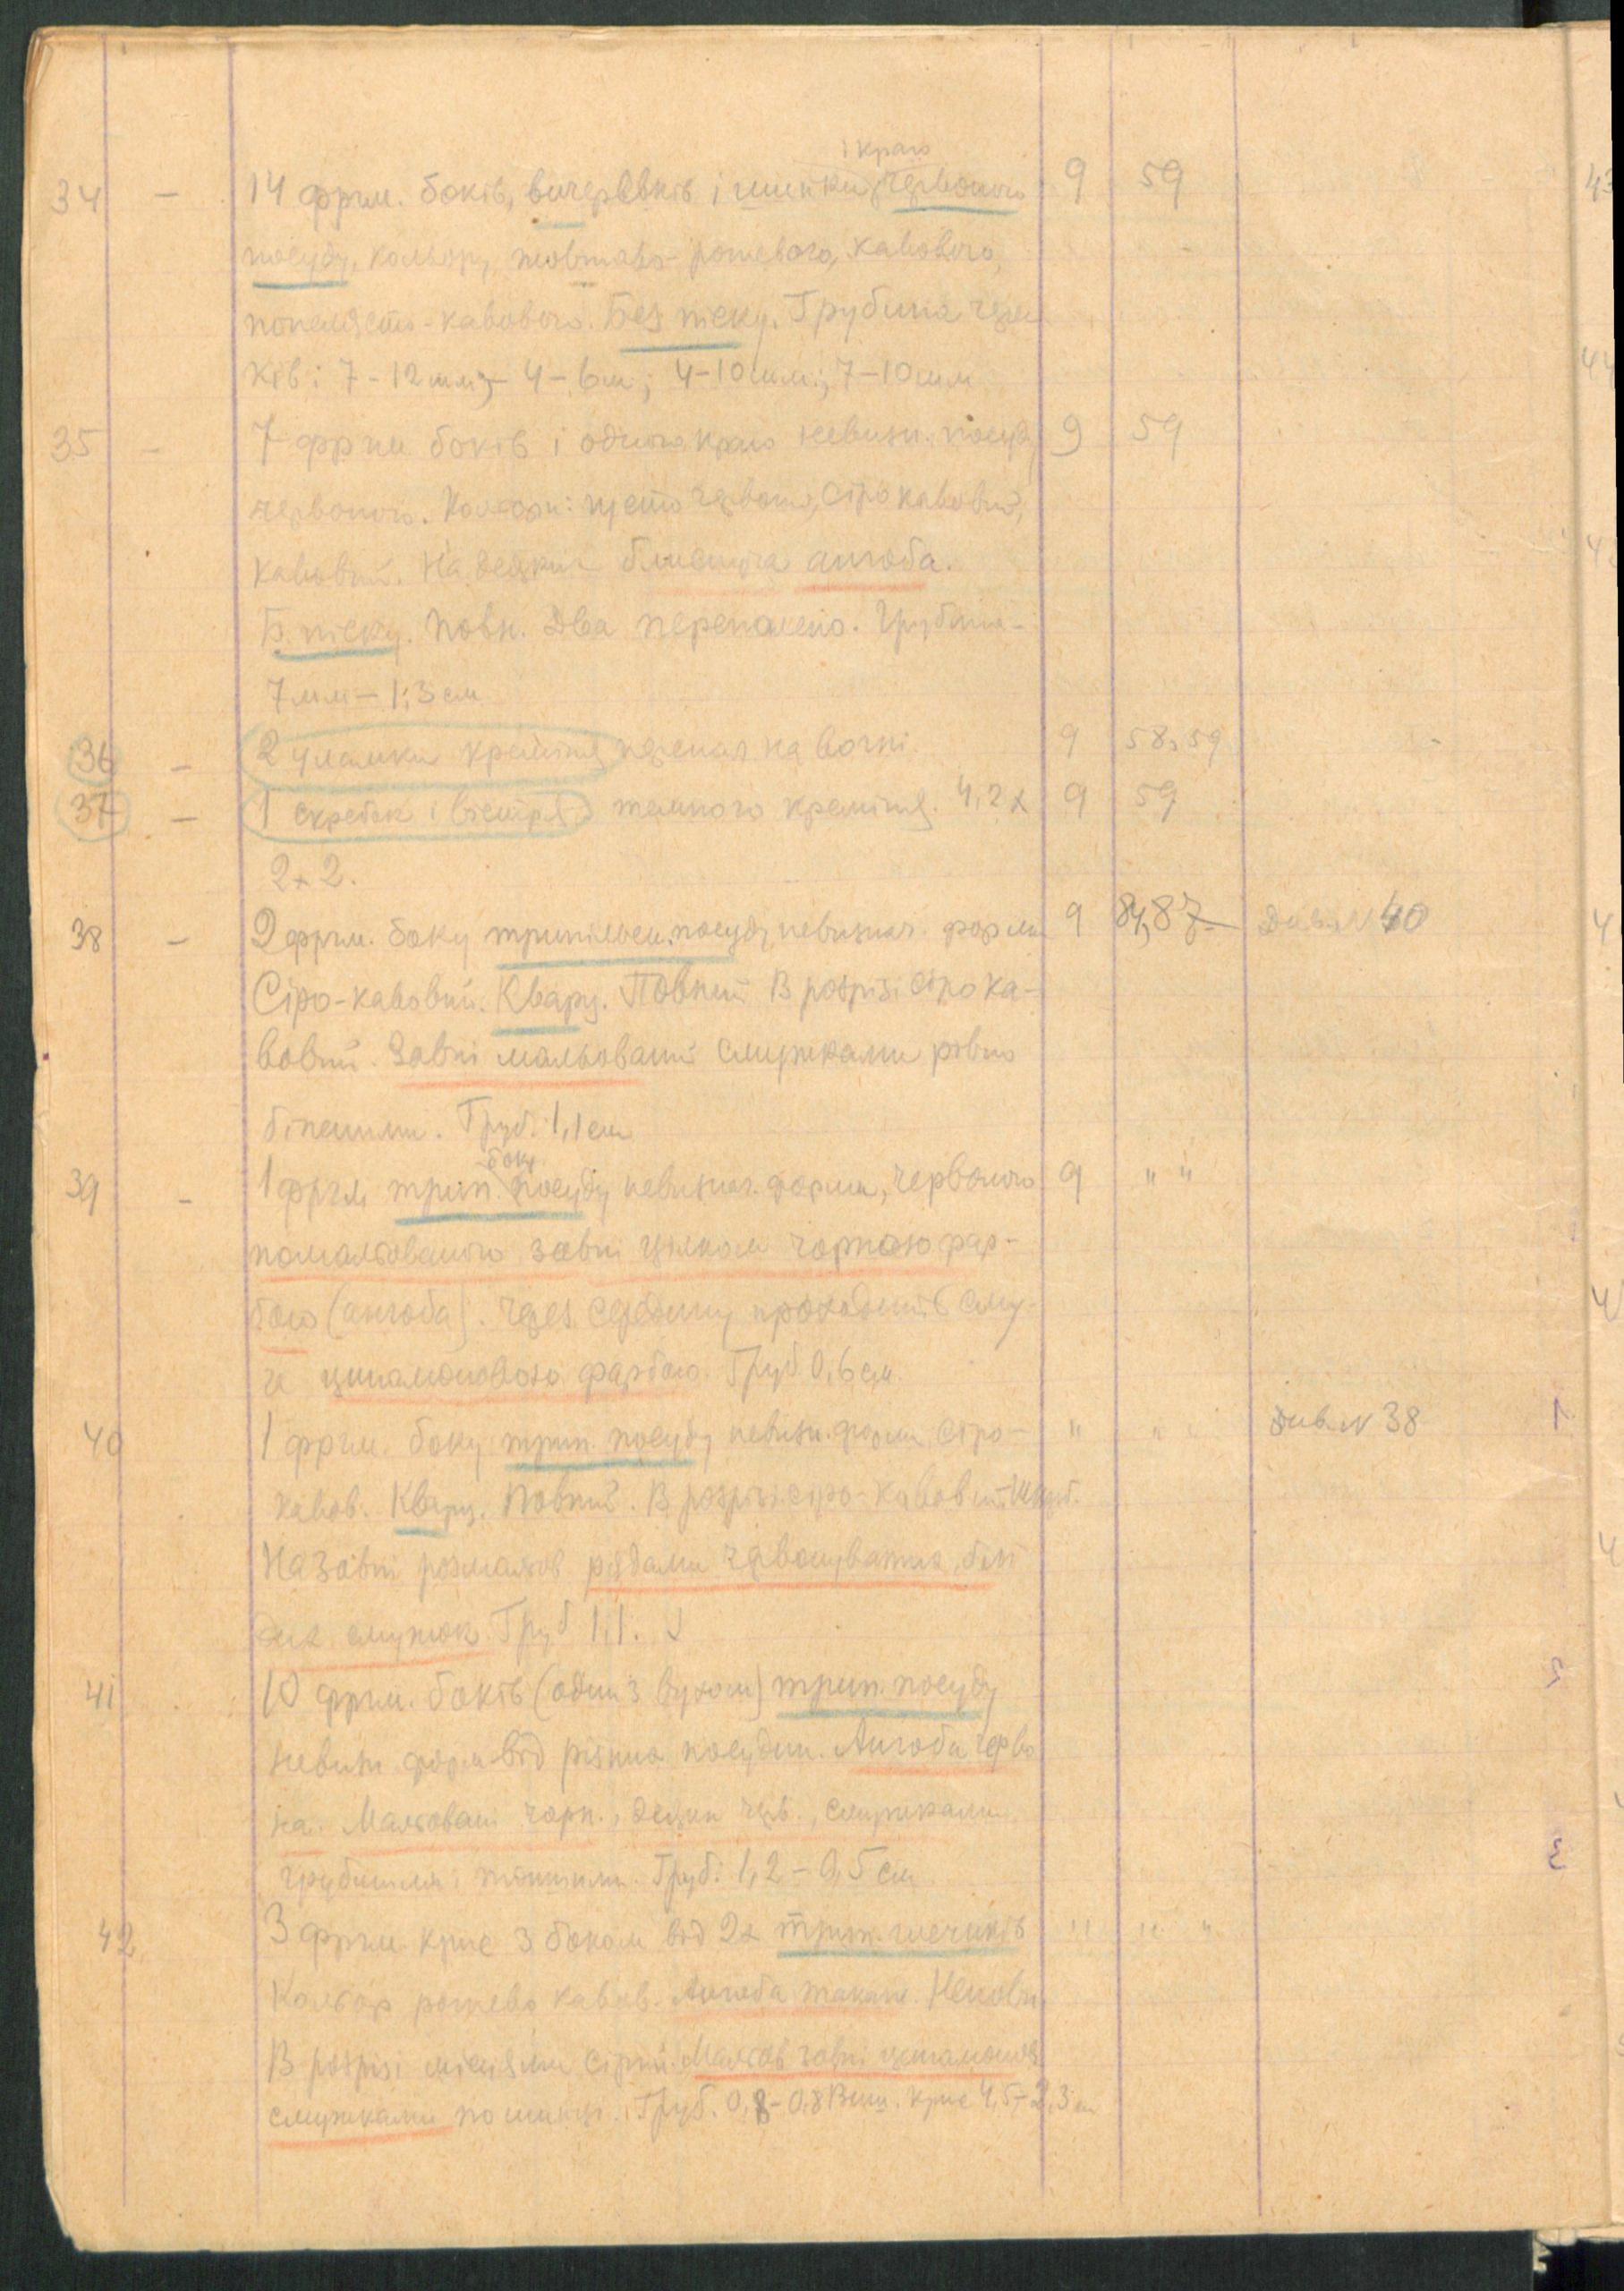 і краю
34 — 14 фргм. боків, вичеревків і шийки червоного 9 59
посуду, кольору жовтаво-рожевого, кавового,
попелясто-кавового. Без піску. Грубина череп
ків: 7-12 мм; 4-6 мм; 4-10 мм; 7-10 мм
35 — 7 фргм боків і одного краю невизн. посуду 9 59
червоного. Кольори: чисто червоний, сіро кавовий,
кавовий. На деяких блискуча ангоба.
Б. піску. Повн. Два перепалено. Грубина-
7 мм — 1,3 см
36 — 2 уламки креміня перепал на вогні 9 58, 59
37 — 1 скребок і вістря з темного креміня. 4,2 x 9 59
2x2.
38 — 2 фргм. боку трипільськ. посуду невизнач. форми 9 84, 87 Див. N 40
Сіро-кавовий. Кварц. Повний В розрізі сіро ка-
вовий. Зовні мальований смужками ровно
біленими. Груб. 1,1 см
боку
39 — 1 фргм трип. посуду невизнач. форми, червоного 9 " "
помальованого зовні цілком чорною фар-
бою (ангоба). Через середину проходить сму-
га цинамоновою фарбою. Груб 0,6 см.
40 1 фргм. боку трип. посуду невизн. форми Сіро- " " " Див. N 38
кавов. Кварц. Повний. В розрізі сіро-кавовий
На зовні розмальов рядами червонуватих, біл
их смужок. Груб 1,1.
41 10 фргм. боків (один з вухом) трип. посуду
невизн форм від різних посудин. Ангоба черво
на. Мальовані чорн., деякі черв., смужками
грубшими і тоншими. Груб: 1,2-0,5 см
42 3 фргм крис з боком від 2х трип. мечиків " " "
Кольор рожево кавов. Ангоба така ж. Неповн
В розрізі місцями сірий. Мальов зовні цинамонов
смужками по шийці. Груб. 0,8-0,8 Виш. крис 4,5-2,3 см